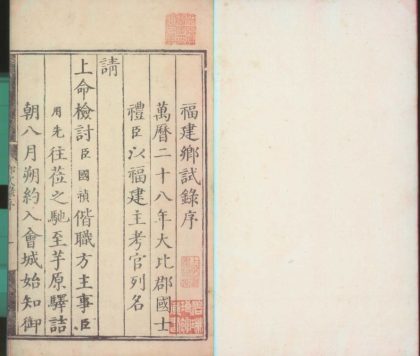 福建鄉試錄序
萬曆二十八年大比郡國士
禮臣以福建主考官列名
請
上命檢討臣國禎偕職方主事臣
用先往蒞之馳至芋原驛詰
朝八月朔約入會城始知御